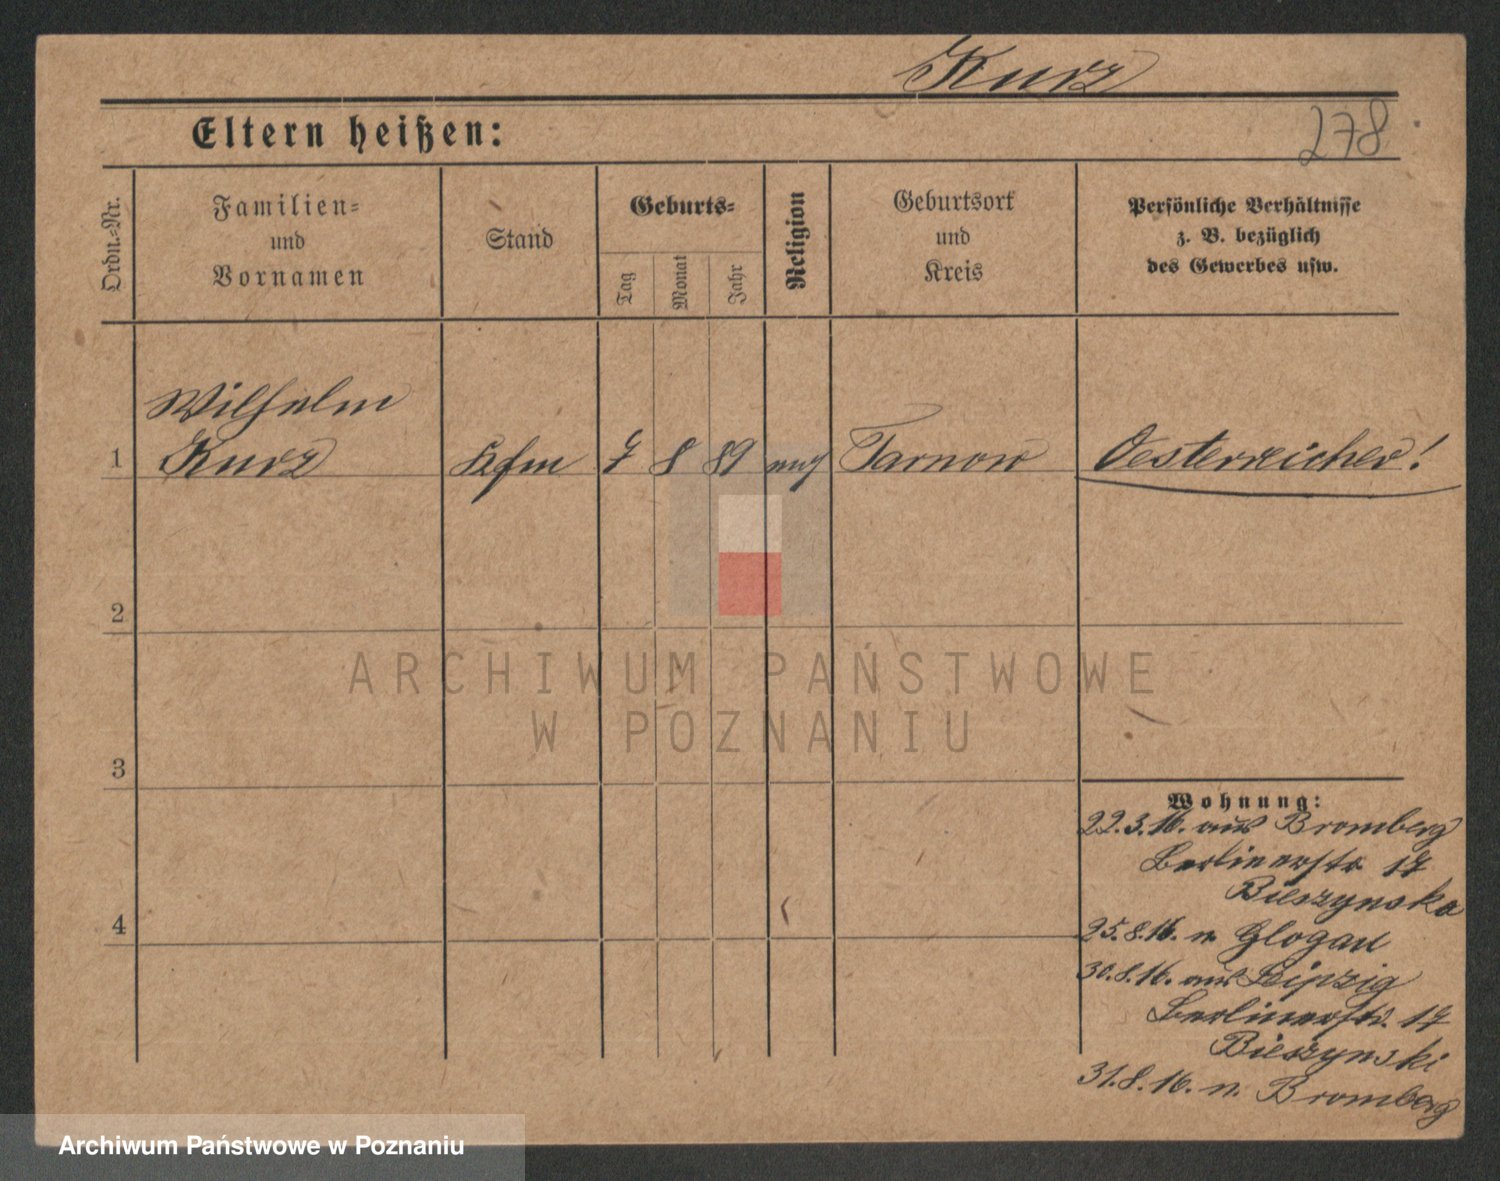 Kurz
278
Eltern heißen:
Ordn.-Nr.
Familien-
und
Vornamen
Stand
Geburts-
Tag
Monat
Jahr
Religion
Geburtsort
und
Kreis
Persönliche Verhältnisse
z. B. bezüglich
des Gewerbes usw.
Wilhelm
1 Kurz Kfm 7 8 89 Tarnow Oesterreicher!
2
ARCHIWUM PAŃSTWOWE
W POZNANIU
3
Wohnung:
22.3.16. aus Bromberg
Berlinerstr 17
Bieszynska
4
25.8.16. n. Glogau
30.8.16. aus Leipzig
Berlinerstr. 17
Bieszynski
31.8.16. n. Bromberg
Archiwum Państwowe w Poznaniu